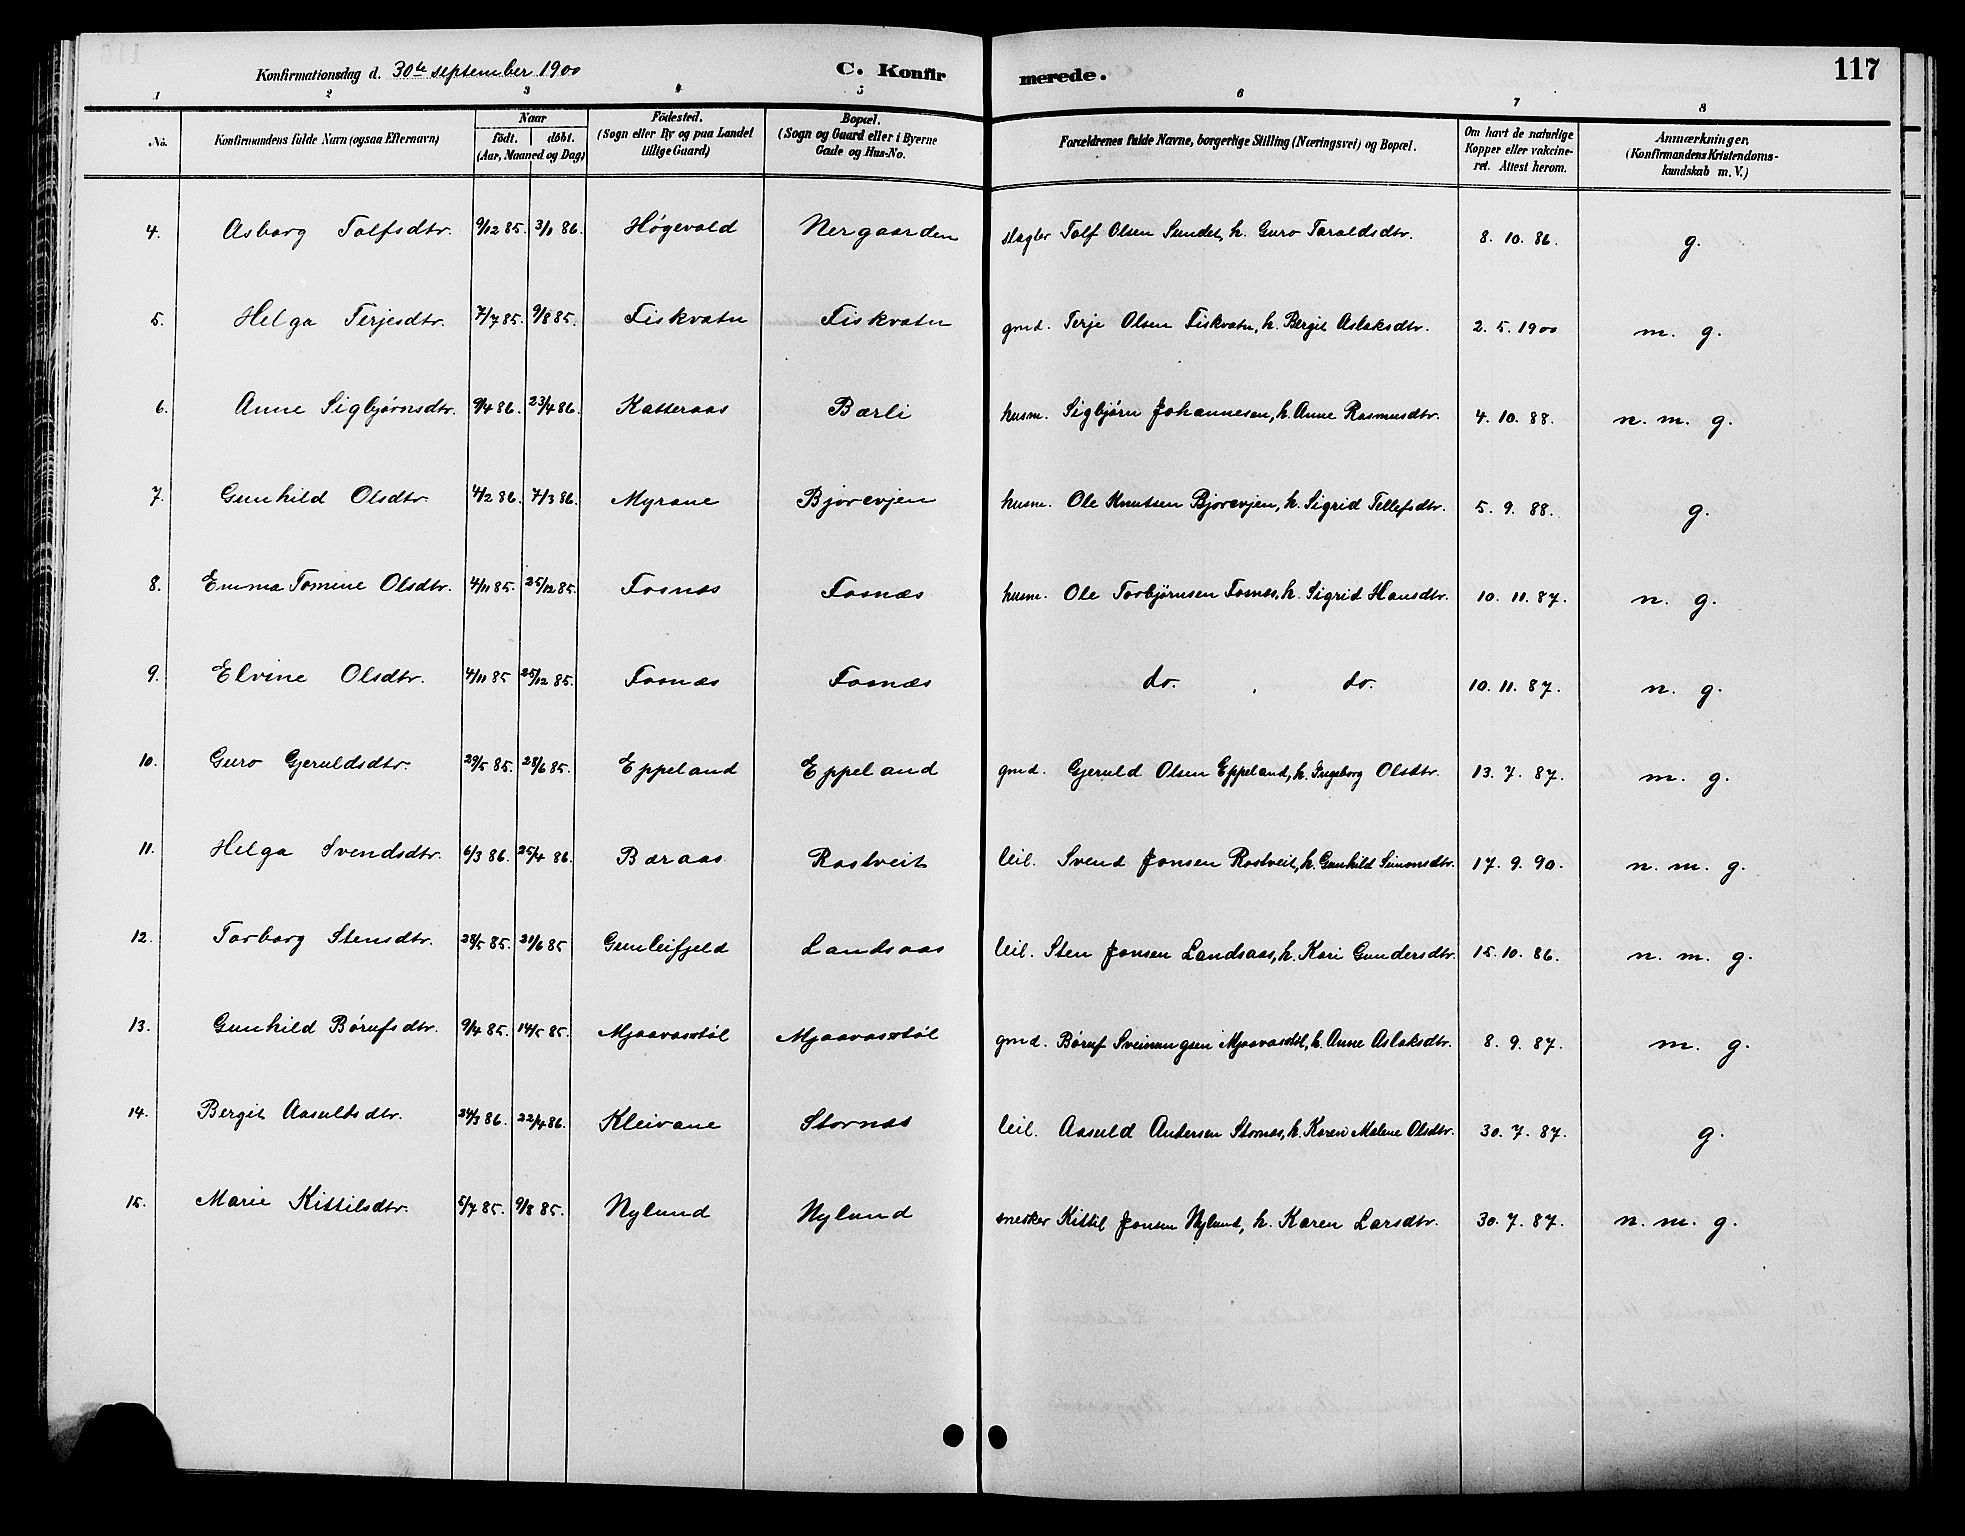 Konfirmationsdag d. 30te september 1900 C. Konfirmerede. 117
1 2 3 4 5 6 7 8
No. Konfirmandens fulde Navn (ogsaa Efternavn) Naar födt. döbt. (Aar, Maaned og Dag) Födested. (Sogn eller By og paa Landet tillige Gaard) Bopæl. (Sogn og Gaard eller i Byerne Gade og Hus-No. Forældrenes fulde Navne, borgerlige Stilling (Næringsvei) og Bopæl. Om havt de naturlige Kopper eller vakcineret. Attest herom. Anmærkninger. (Konfirmandens Kristendomskundskab m. V.)
4. Asborg Tolfsdtr. 9/12 85. 3/1 86. Høgevold Nergaarden slagter Tolf Olsen Sundet, h. Guro Taraldsdtr. 8. 10. 86. g.
5. Helga Terjesdtr. 7/7 85. 9/8 85. Fiskvatn Fiskvatn gmd. Terje Olsen Fiskvatn, h. Bergit Aslaksdtr. 2. 5. 1900 m. g.
6. Anne Sigbjørnsdtr. 9/4 86. 23/4 86. Katteraas Bærli husm. Sigbjörn Johannesen, h. Anne Rasmusdtr. 4. 10. 88. n. m. g.
7. Gunhild Olsdtr 4/2 86. 7/3 86. Myrane Bjorevjen husm. Ole Knutsen Bjorevjen, h. Sigrid Tellefsdtr. 5. 9. 88. g.
8. Emma Tomine Olsdtr. 4/11 85. 25/12 85. Fosnæs Fosnæs husm. Ole Torbjørnsen Fosnæs, h. Sigrid Hansdtr. 10. 11. 87. n. g.
9. Elvine Olsdtr. 4/11 85 25/12 85. Fosnæs Fosnæs do. do. 10. 11. 87. n. g.
10. Guro Gjeruldsdtr. 29/5 85. 28/6 85. Eppeland Eppeland gmd. Gjeruld Olsen Eppeland, h. Ingeborg Olsdtr. 13. 7. 87. m. g.
11. Helga Svendsdtr. 6/3 86. 25/4 86. Bæraas Rostveit leil. Svend Jonsen Rostveit, h. Gunhild Simonsdtr. 17. 9. 90. n. m. g.
12. Torborg Stensdtr. 28/5 85. 21/6 85 Gunleifjeld Landsaas leil. Sten Jonsen Landsaas, h. Kari Gundersdtr. 15. 10. 86. n. m. g.
13. Gunhild Börufsdtr. 9/4 85. 14/5 85. Mjaavasstøl Mjaavasstøl gmd. Böruf Sveinungsen Mjaavasstøl, h. Anne Aslaksdtr. 8. 9. 87. m. g.
14. Bergit Aasuldsdtr. 24/3 86. 22/4 86. Kleivane Stornæs leil. Aasuld Andersen Stornæs, h. Karen Malene Olsdtr. 30. 7. 87. g.
15. Marie Kittilsdtr. 5/7 85. 9/8 85. Nylund Nylund snekker Kittil Jonsen Nylund, h. Karen Larsdtr. 30. 7. 87. n. m. g.